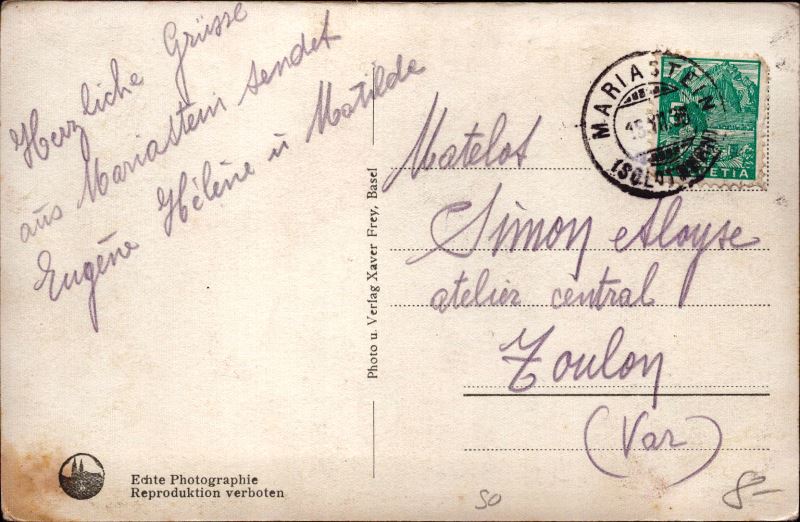 Herzliche Grüsse
aus Mariastein sendet
Eugène Hélène u Matilde
Photo u. Verlag Xaver Frey, Basel
Echte Photographie
Reproduktion verboten
MARIASTEIN
(SOLOTHURN)
5
HELVETIA
Matelot
Simon Aloyse
atelier central
Toulon
(Var)
50
8-